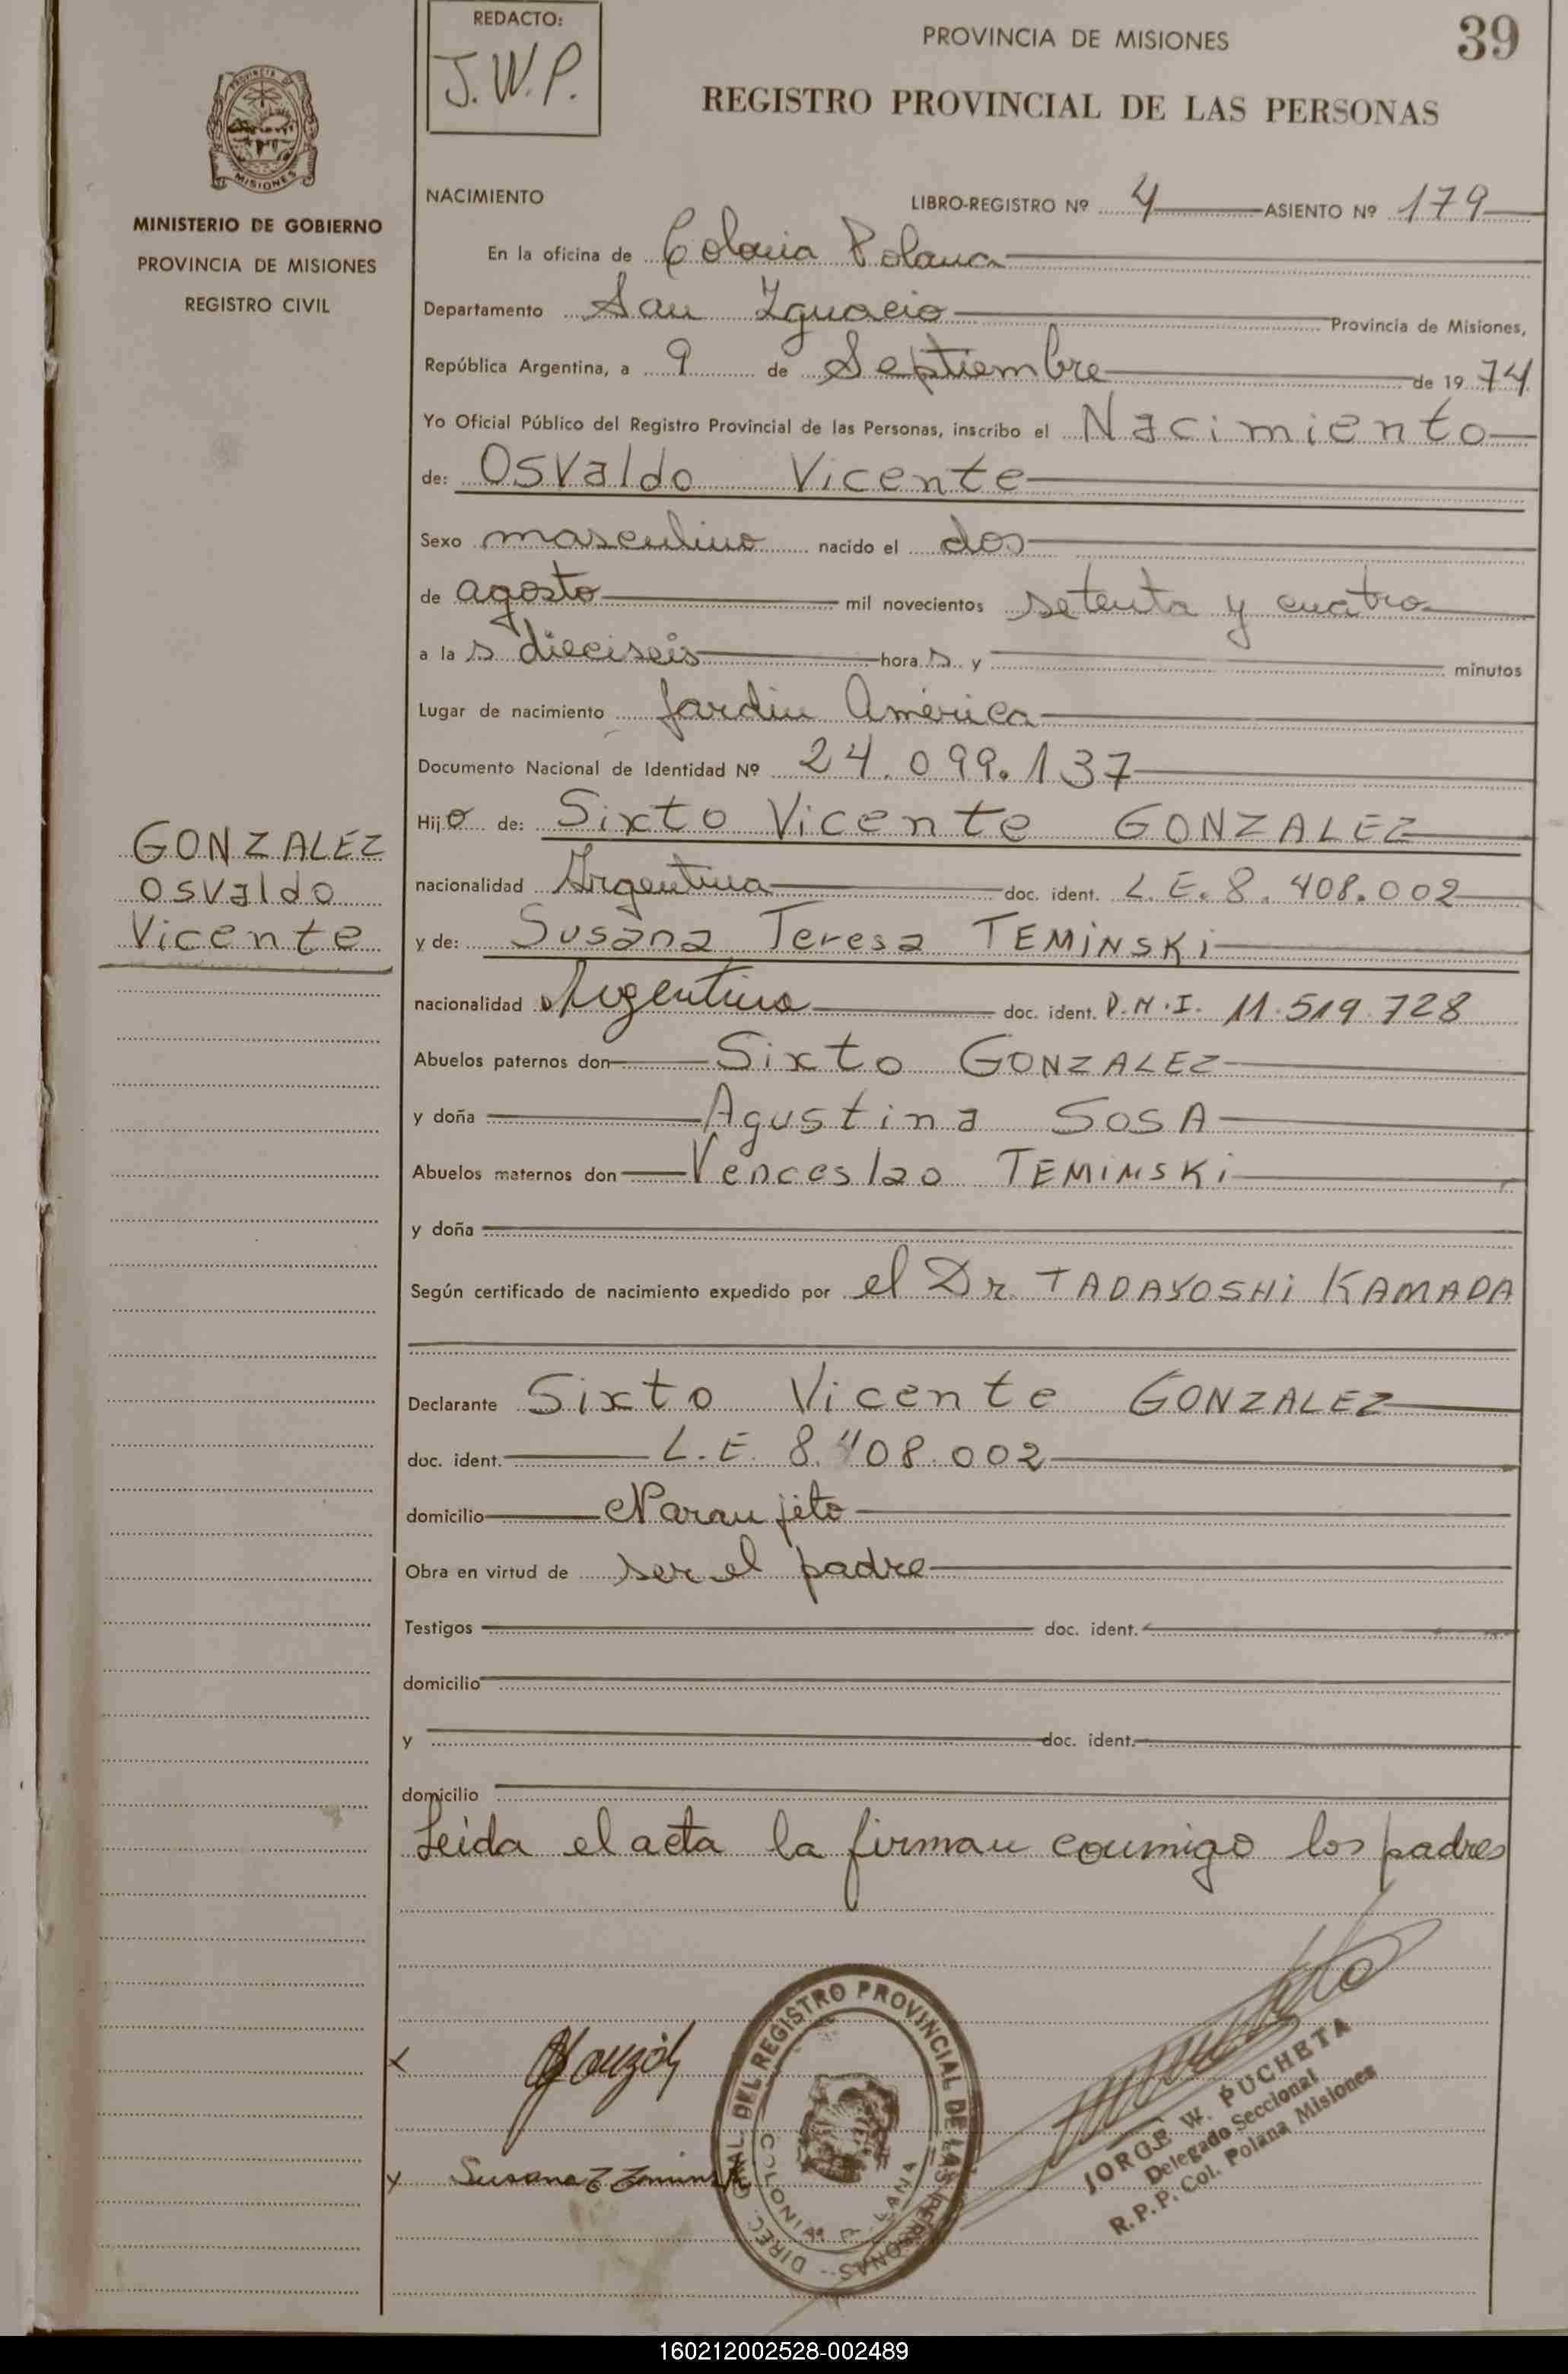 REDACTO:
J.W.P.
PROVINCIA DE MISIONES
39
REGISTRO PROVINCIAL DE LAS PERSONAS
PROVINCIA DE
MISIONES
MINISTERIO DE GOBIERNO
PROVINCIA DE MISIONES
REGISTRO CIVIL
NACIMIENTO
LIBRO-REGISTRO Nº 4 ASIENTO Nº 179
En la oficina de Colonia Polana
Departamento San Ignacio Provincia de Misiones,
República Argentina, a 9 de Septiembre de 1974
Yo Oficial Público del Registro Provincial de las Personas, inscribo el Nacimiento
de: Osvaldo Vicente
Sexo masculino nacido el dos
de agosto mil novecientos setenta y cuatro
a las dieciseis horas y minutos
Lugar de nacimiento Jardin América
Documento Nacional de Identidad Nº 24.099.137
Hijo de: Sixto Vicente GONZALEZ
nacionalidad Argentina doc. ident. L.E. 8.408.002
y de: Susana Teresa TEMINSKi
nacionalidad Argentina doc. ident. D.N.I. 11.519.728
Abuelos paternos don Sixto GONZALEZ
y doña Agustina SOSA
Abuelos maternos don Venceslao TEMINSKi
y doña
Según certificado de nacimiento expedido por el Dr. TADAYOSHi KAMADA
Declarante Sixto Vicente GONZALEZ
doc. ident. L.E. 8.408.002
domicilio Naranjito
Obra en virtud de ser el padre
Testigos doc. ident.
domicilio
y doc. ident.
domicilio
Leida el acta la firman conmigo los padres
GONZALEZ
Osvaldo
Vicente
DIREC. GRAL. DEL REGISTRO PROVINCIAL DE LAS PERSONAS
COLONIA P LANA
Susana T Teminski
JORGE W. PUCHETA
Delegado Seccional
R.P.P. Col. Polana Misiones
160212002528-002489